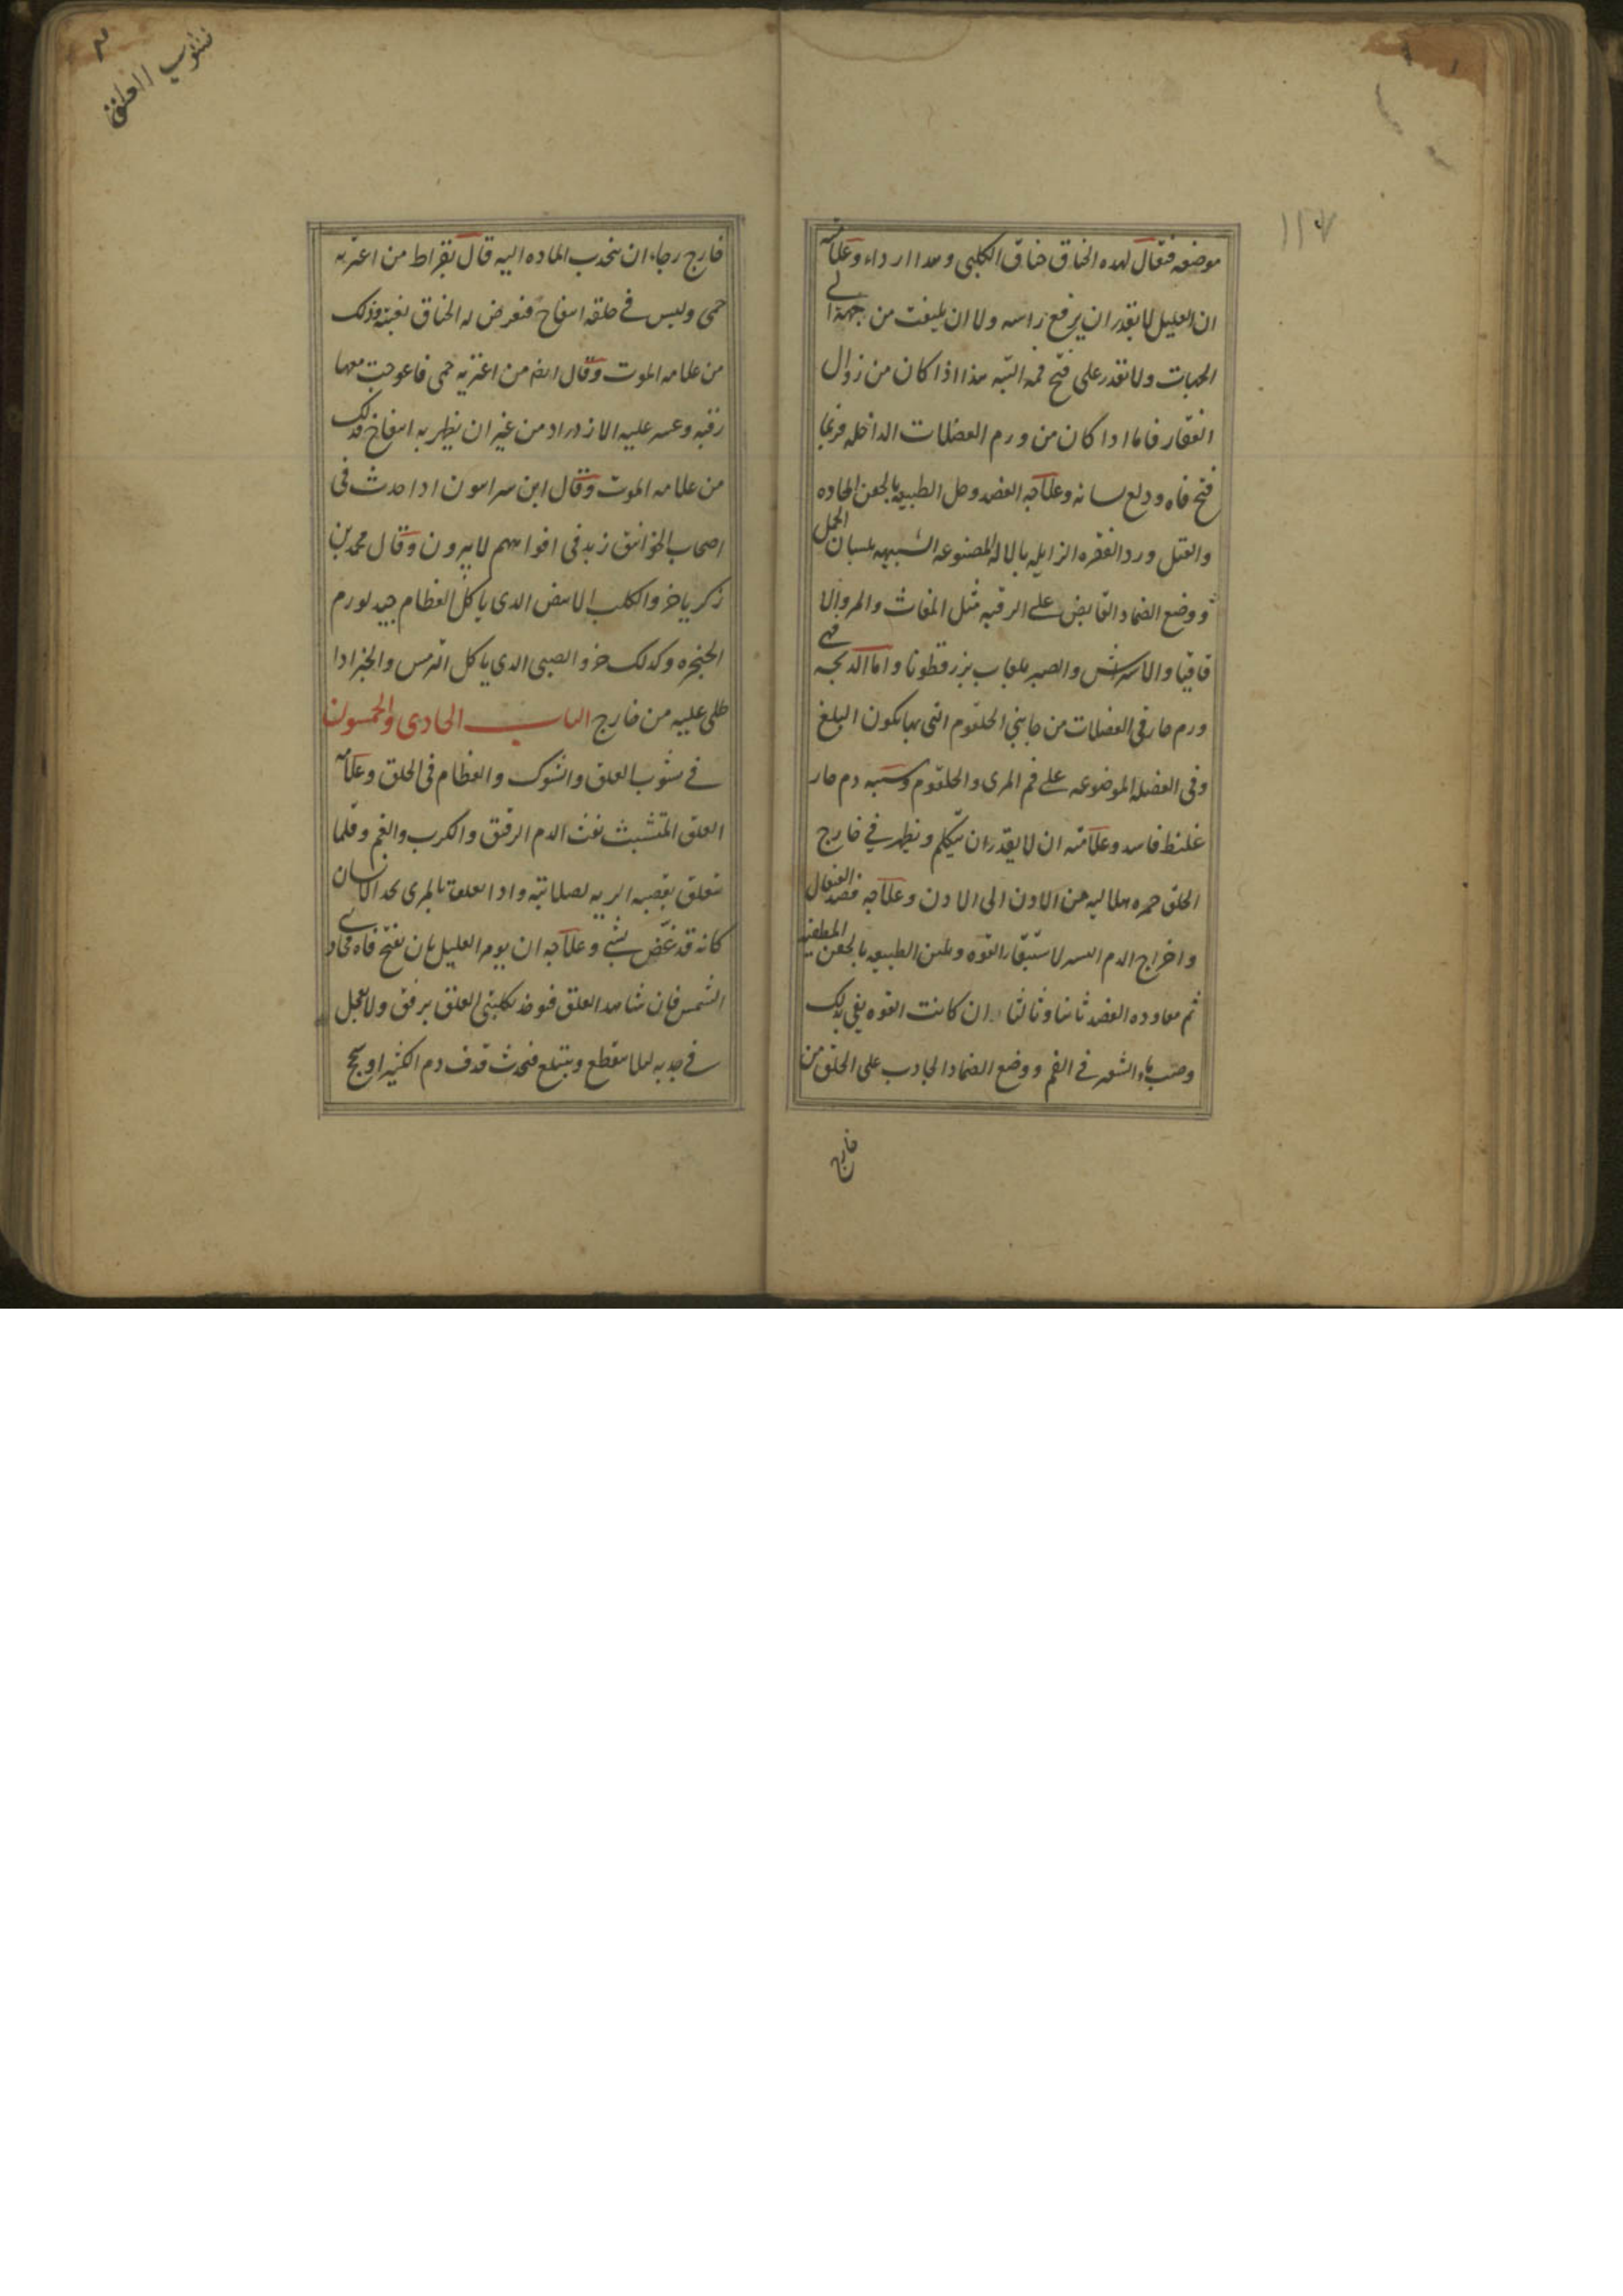 ١١٧
موضعه فيقال لهده الخناق خناق الكلبى وهدا اارداء وعلامته
ان العليل لا يقدر ان يرفع راسه ولا ان يلتفت من جهة الى
الجهات ولا يقدر على فتح فمه البته هذا اذا كان من زوال
الفقار فاما ادا كان من ورم العضلات الداخله فربما
فتح فاه ودلع لسانه وعلاجه الفصد وحل الطبيعه بالحقن الحاده
والفتل ورد الفقره الزايله بالاله المصنوعه الشبيهه بلسان الحمل
ووضع الضماد القابض على الرقبه مثل المغاث والمر والا
قاقيا والاسراش والصبر بلعاب بزر قطونا واما الدبحه فهى
ورم حار فى العضلات من جانبى الحلقوم التى بها يكون البلع
وفى العضله الموضوعه على فم المرى والحلقوم وسببه دم حار
غليظ فاسد وعلامته ان لا يقدر ان يتكلم ويظهر فى خارج
الحلق حمره هلاليه من الادن الى الادن وعلاجه فصد القيفال
واخراج الدم اليسير لاستبقاء القوه وتليين الطبيعه بالحقن المطفيه
ثم معاوده الفصد ثانيا وثالثا ان كانت القوه يفى بدلك
وصب ماء الشعير فى الفم ووضع الضماد الجادب على الحلق من
خارج
شوب العلق
خارج رجاء ان ينجدب الماده اليه قال بقراط من اعتريه
حمى وليس فى حلقه انتفاخ فيعرض له الخناق بغتة فذلك
من علامه الموت وقال ايضا من اعتريه حمى فاعوجت معها
رقبه وعسر عليه الازدراد من غير ان يظهر به انتفاخ فدلك
من علامه الموت وقال ابن سرابيون ادا حدث فى
اصحاب الخوانيق زبد فى افواههم لا يبرون وقال محمد بن
زكريا خرو الكلب الابيض الدى ياكل العظام جيد لورم
الحنجره وكدلك خرو الصبى الدى ياكل الترمس والخبز ادا
طلى عليه من خارج الباب الحادى والخمسون
فى نشوب العلق والشوك والعظام فى الحلق وعلامه
العلق المتشبث نفث الدم الرقيق والكرب والغم وقلما
يتعلق بقصبه الريه لصلابته وادا تعلقت بالمرى يجد الانسان
كانه قد غص بشئ وعلاجه ان يومر العليل بان يفتح فاه محادى
الشمس فان شاهد العلق فيوخذ بكلبتى العلق برفق ولا يعجل
فى جدبه لئلا ينقطع ويبتلع فيحدث قدف دم الكثير او سحج